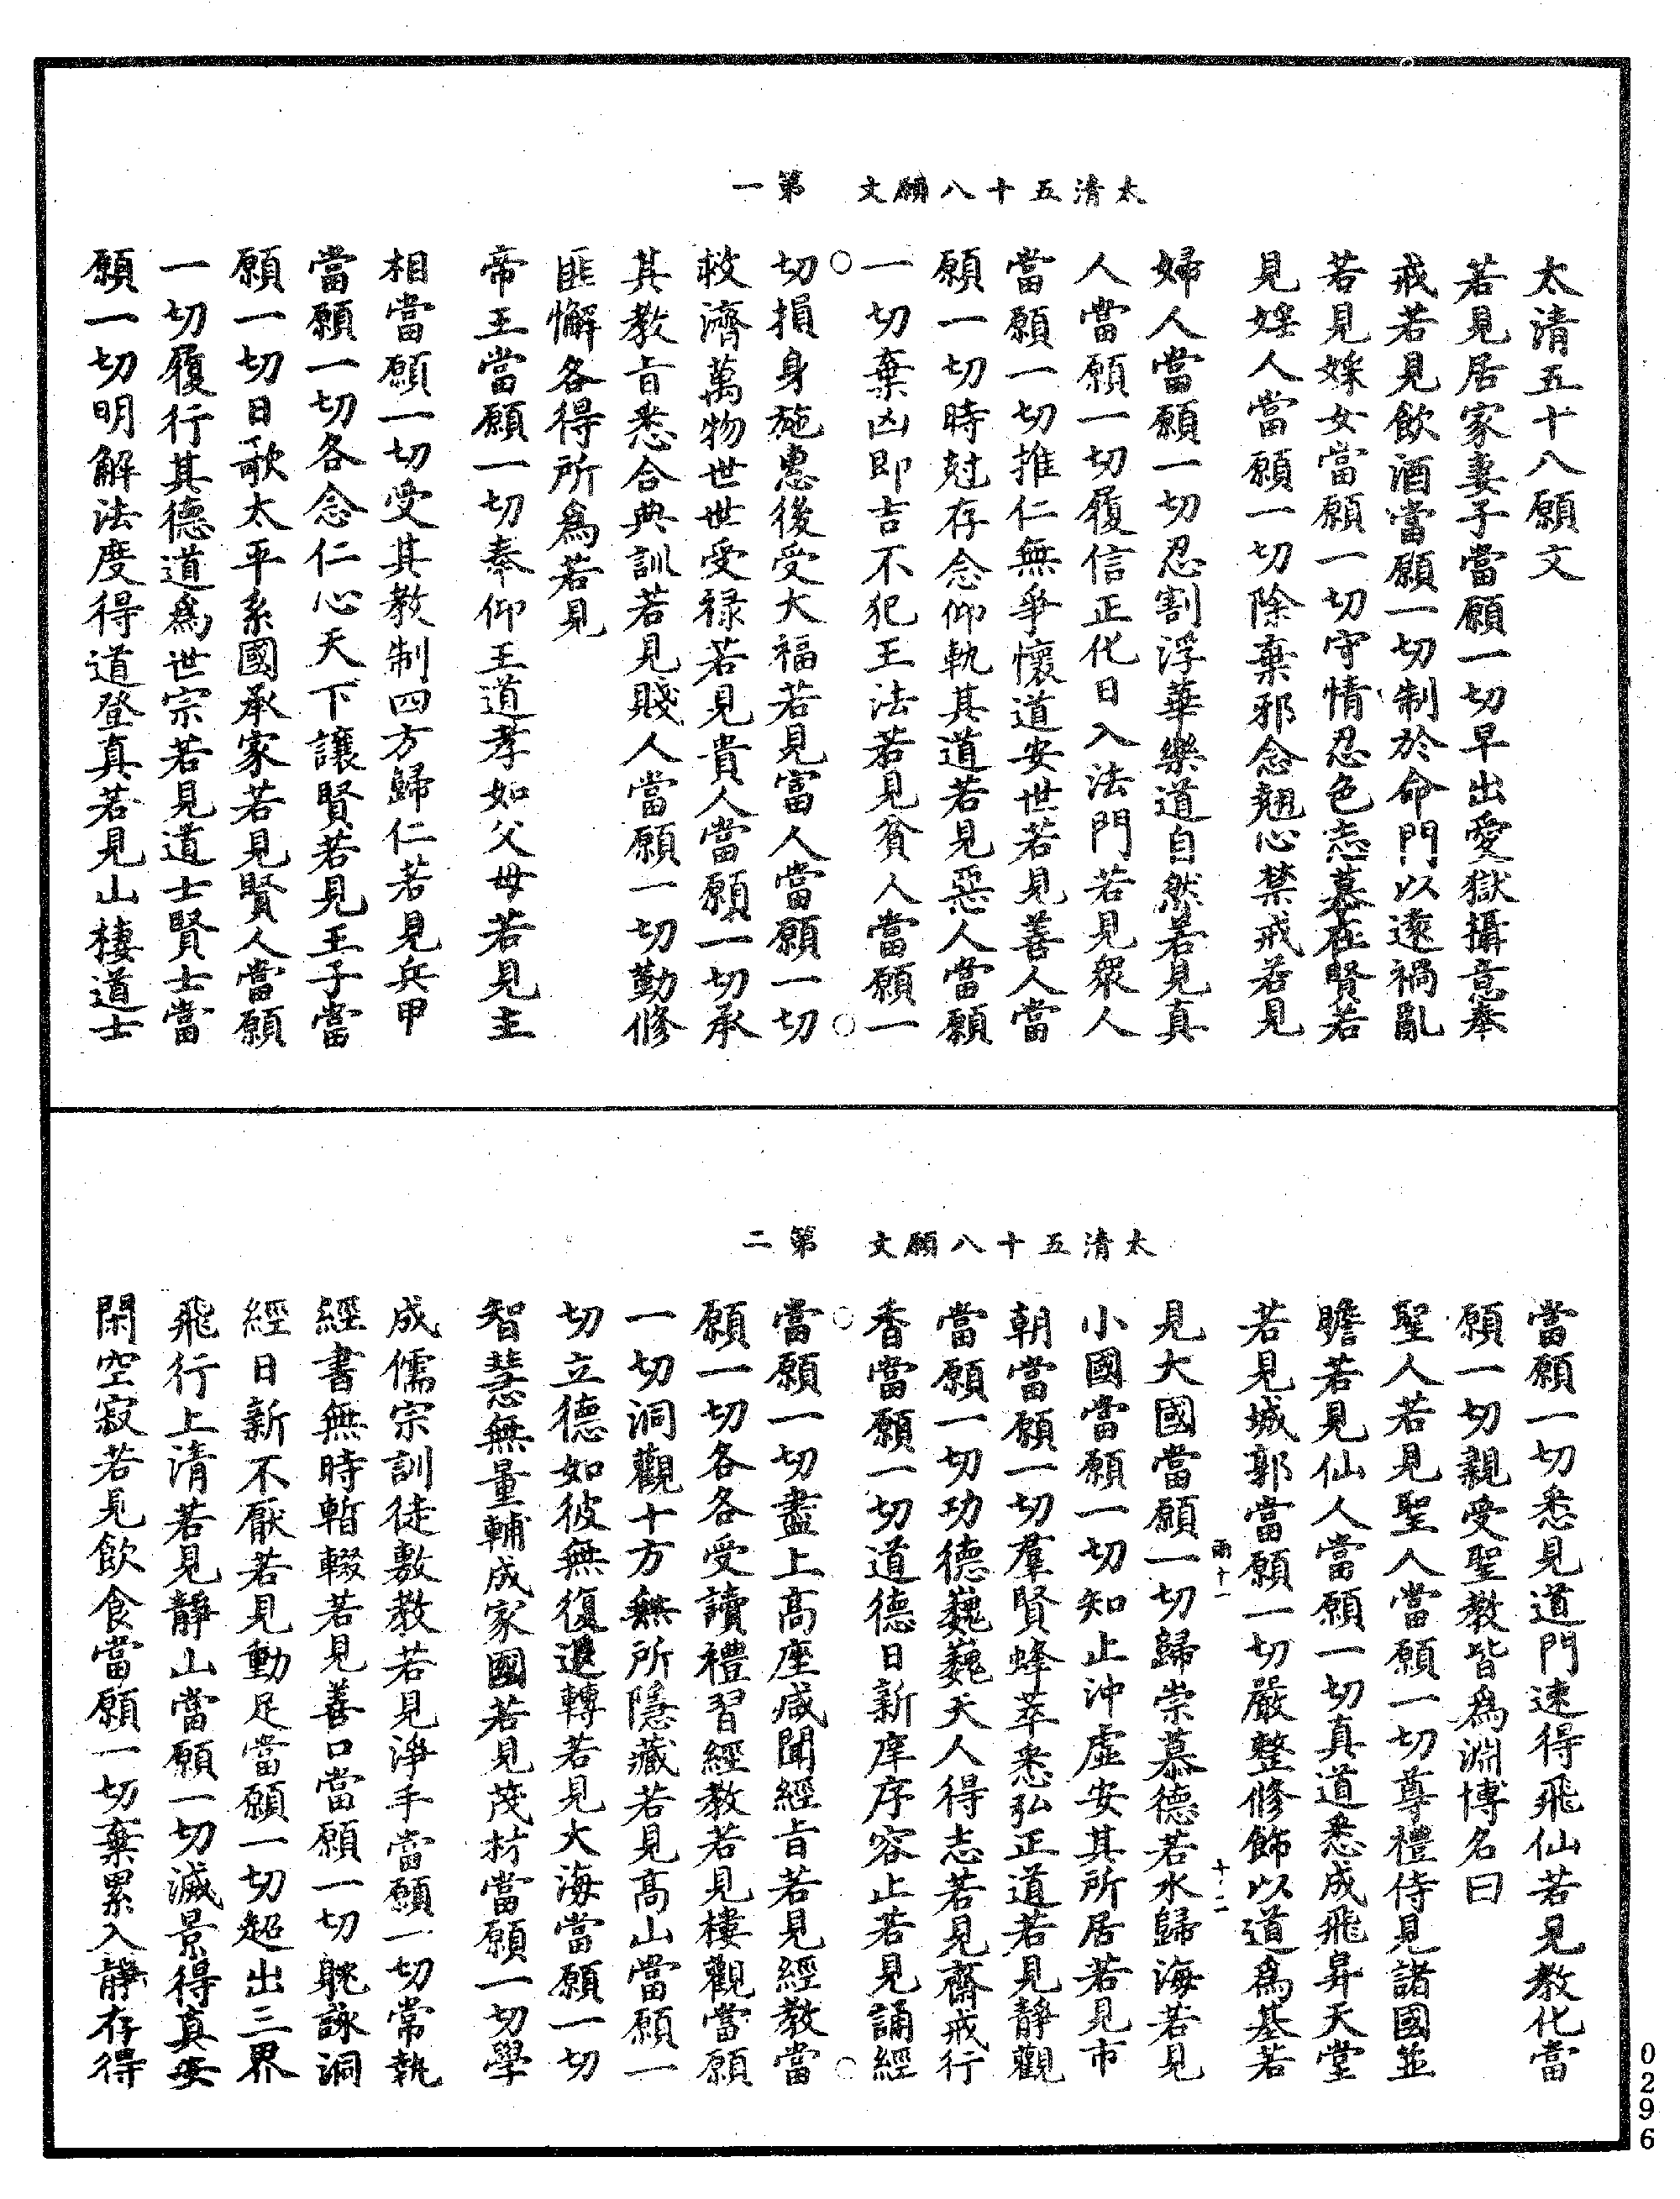 太清五十八願文　第一
太清五十八願文
若見居家妻子當願一切早出愛獄攝意奉
戒若見飲酒當願一切制於命門以遠禍亂
若見婇女當願一切守情忍色志慕在賢若
見婬人當願一切除棄邪念翹心禁戒若見
婦人當願一切忍割浮華樂道自然若見真
人當願一切履信正化日入法門若見衆人
當願一切推仁無爭懷道安世若見善人當
願一切時尅存念仰軌其道若見惡人當願
一切棄凶即吉不犯王法若見貧人當願一
切損身施惠後受大福若見富人當願一切
救濟萬物世世受祿若見貴人當願一切承
其教旨悉合典訓若見賤人當願一切勤修
匪懈各得所爲若見
帝王當願一切奉仰王道孝如父母若見主
相當願一切受其教制四方歸仁若見兵甲
當願一切各念仁心天下讓賢若見王子當
願一切日歌太平系國承家若見賢人當願
一切履行其德道爲世宗若見道士賢士當
願一切明解法度得道登真若見山棲道士
太清五十八願文　第二
當願一切悉見道門速得飛仙若見教化當
願一切親受聖教皆爲淵博名曰
聖人若見聖人當願一切尊禮侍見諸國並
瞻若見仙人當願一切真道悉成飛昇天堂
若見城郭當願一切嚴整修飾以道爲基若
雨十一　十二
見大國當願一切歸崇慕德若水歸海若見
小國當願一切知止沖虛安其所居若見市
朝當願一切羣賢蜂萃悉弘正道若見靜觀
當願一切功德巍巍天人得志若見齋戒行
香當願一切道德日新庠序容止若見誦經
當願一切盡上高座咸聞經旨若見經教當
願一切各各受讀禮習經教若見樓觀當願
一切洞觀十方無所隱藏若見高山當願一
切立德如彼無復退轉若見大海當願一切
智慧無量輔成家國若見茂材當願一切學
成儒宗訓徒敷教若見淨手當願一切常執
經書無時暫輟若見善口當願一切躭詠洞
經日新不厭若見動足當願一切超出三界
飛行上清若見靜山當願一切滅景得真安
閑空寂若見飲食當願一切棄累入靜存得
0296